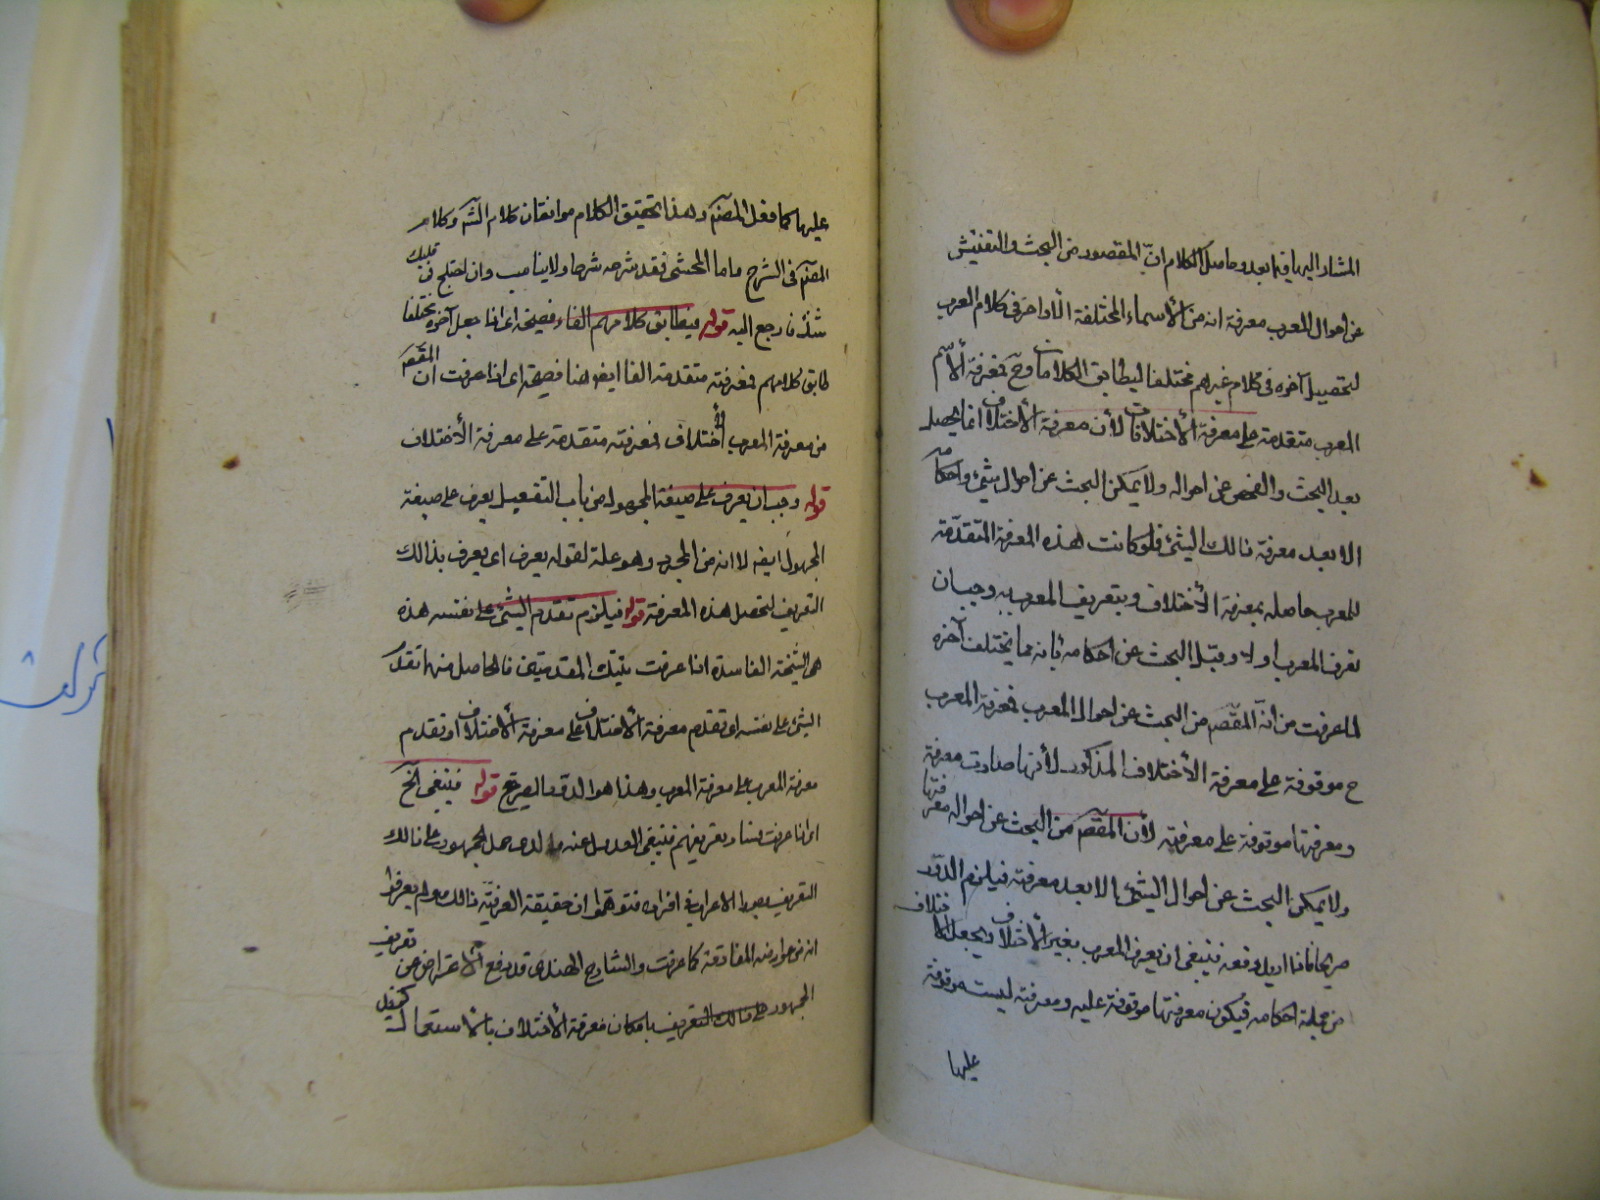 المشار اليها فيما بعد وحاصل الكلام انّ المقصود من البحث والتفتيش
عن احوال المعرب معرفة انه من الأسماء المختلفة الأواخر في كلام العرب
لتحصيل آخره في كلام غيرهم مختلفا ليطابق الكلامان وح فمعرفة
المعرب متقدمة على معرفة الأختلاف لأن معرفة الأختلاف انما يحصل
بعد البحث والفحص عن احواله ولا يمكن البحث عن احوال شئ واحكامه
الا بعد معرفة ذالك الشئ فلو كانت هذه المعرفة المتقدّمة
للمعرب حاصله بمعرفة الأختلاف وبتعريف المعرب به وجب ان
نعرف المعرب اولا وقبل البحث عن احكامه بأنه مما يختلف آخره
لما عرفت من انّ المقصم من البحث عن احوال المعرب فمعرفة المعرب
ح موقوفة على معرفة الأختلاف المذكور لأنها صارت معرفة
ومعرفتها موقوفة على معرفته لأن المقصم من البحث عن احواله معرفتها
ولا يمكن البحث عن احوال الشئ الا بعد معرفته فيلزم الدوّر
صريحا فاذا اريد دفعه فينبغى ان يعرف المعرب بغير الأختلاف ويجعل الاختلاف
من جملة احكامه فيكون معرفتها موقوفة عليه ومعرفته ليست موقوفة
عليها
عليها كما فعل المصنم وهذا تحقيق الكلام موافقا كلام الشم وكلام
المصنم في الشرح واما المحشى فقد شرحه شرحا ولا يناسب وان اختلج في قلبك
شك فارجع اليه قوله فيطابق كلامهم الفاء فصيحة اى اذا جعل آخره مختلفا
طابق كلامهم فمعرفته متقدمة الفا ايضا هنا فصيحة اى اذا عرفت ان المقصم
من معرفة المعرب الأختلاف فمعرفته متقدمة على معرفة الأختلاف
قوله وجب ان يعرف على صيغة المجهول من باب التفعيل يعرف على صيغة
المجهول ايضه لا انه من المجرد وهو علة لقوله يعرف اى يعرف بذالك
التعريف لتحصل هذه المعرفة قوله فيلزم تقدم الشئ على نفسه هذه
هى النتيجة الفاسدة اذا عرفت بتينك المقدمتين فالحاصل منها تقدم
الشئ على نفسه اى تقدم معرفة الأختلاف على معرفة الأختلاف او تقدم
معرفة المعرب على معرفة المعرب وهذا هو الدور الصريح قوله فينبغى الخ
اى اذا عرفت فساد تعريفهم فينبغى العدول عنه والذى حمل الجمهور على ذالك
التعريف افراده فتوهموا ان حقيقة العرفيّة ذالك ولم يعرفوا
انه من عوارضه المفارقة كما عرفت والشارح الهندى قد دفع الاعتراض عن تعريف
الجمهور على ذالك التعريف بامكان معرفة الأختلاف بالأستعمال